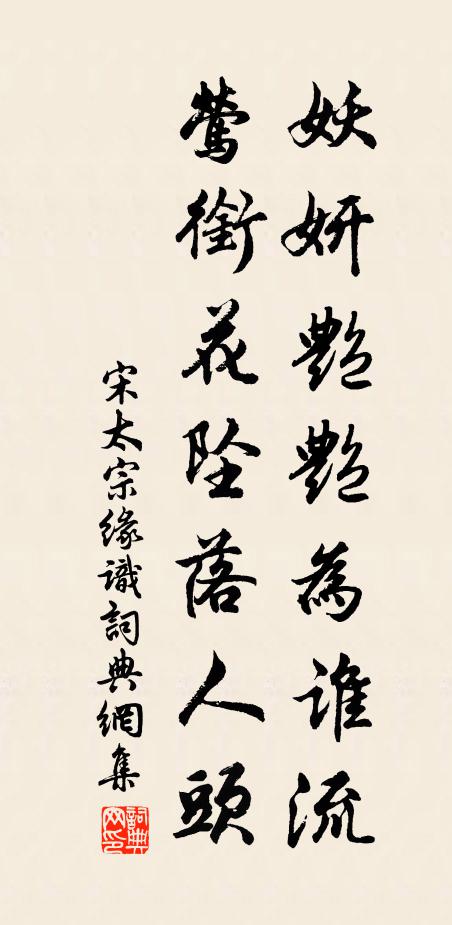 妖妍艷艷為誰流
鶯銜花墜落人頭
宋太宗緣識詞典網集
詞典網印